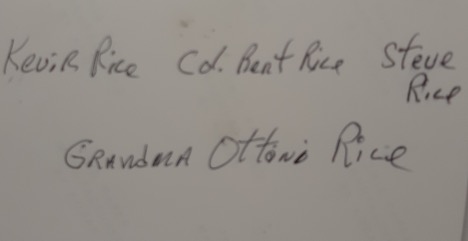 Kevin Rice Col. Bent Rice Steve
Rice
Grandma Ottoni Rice